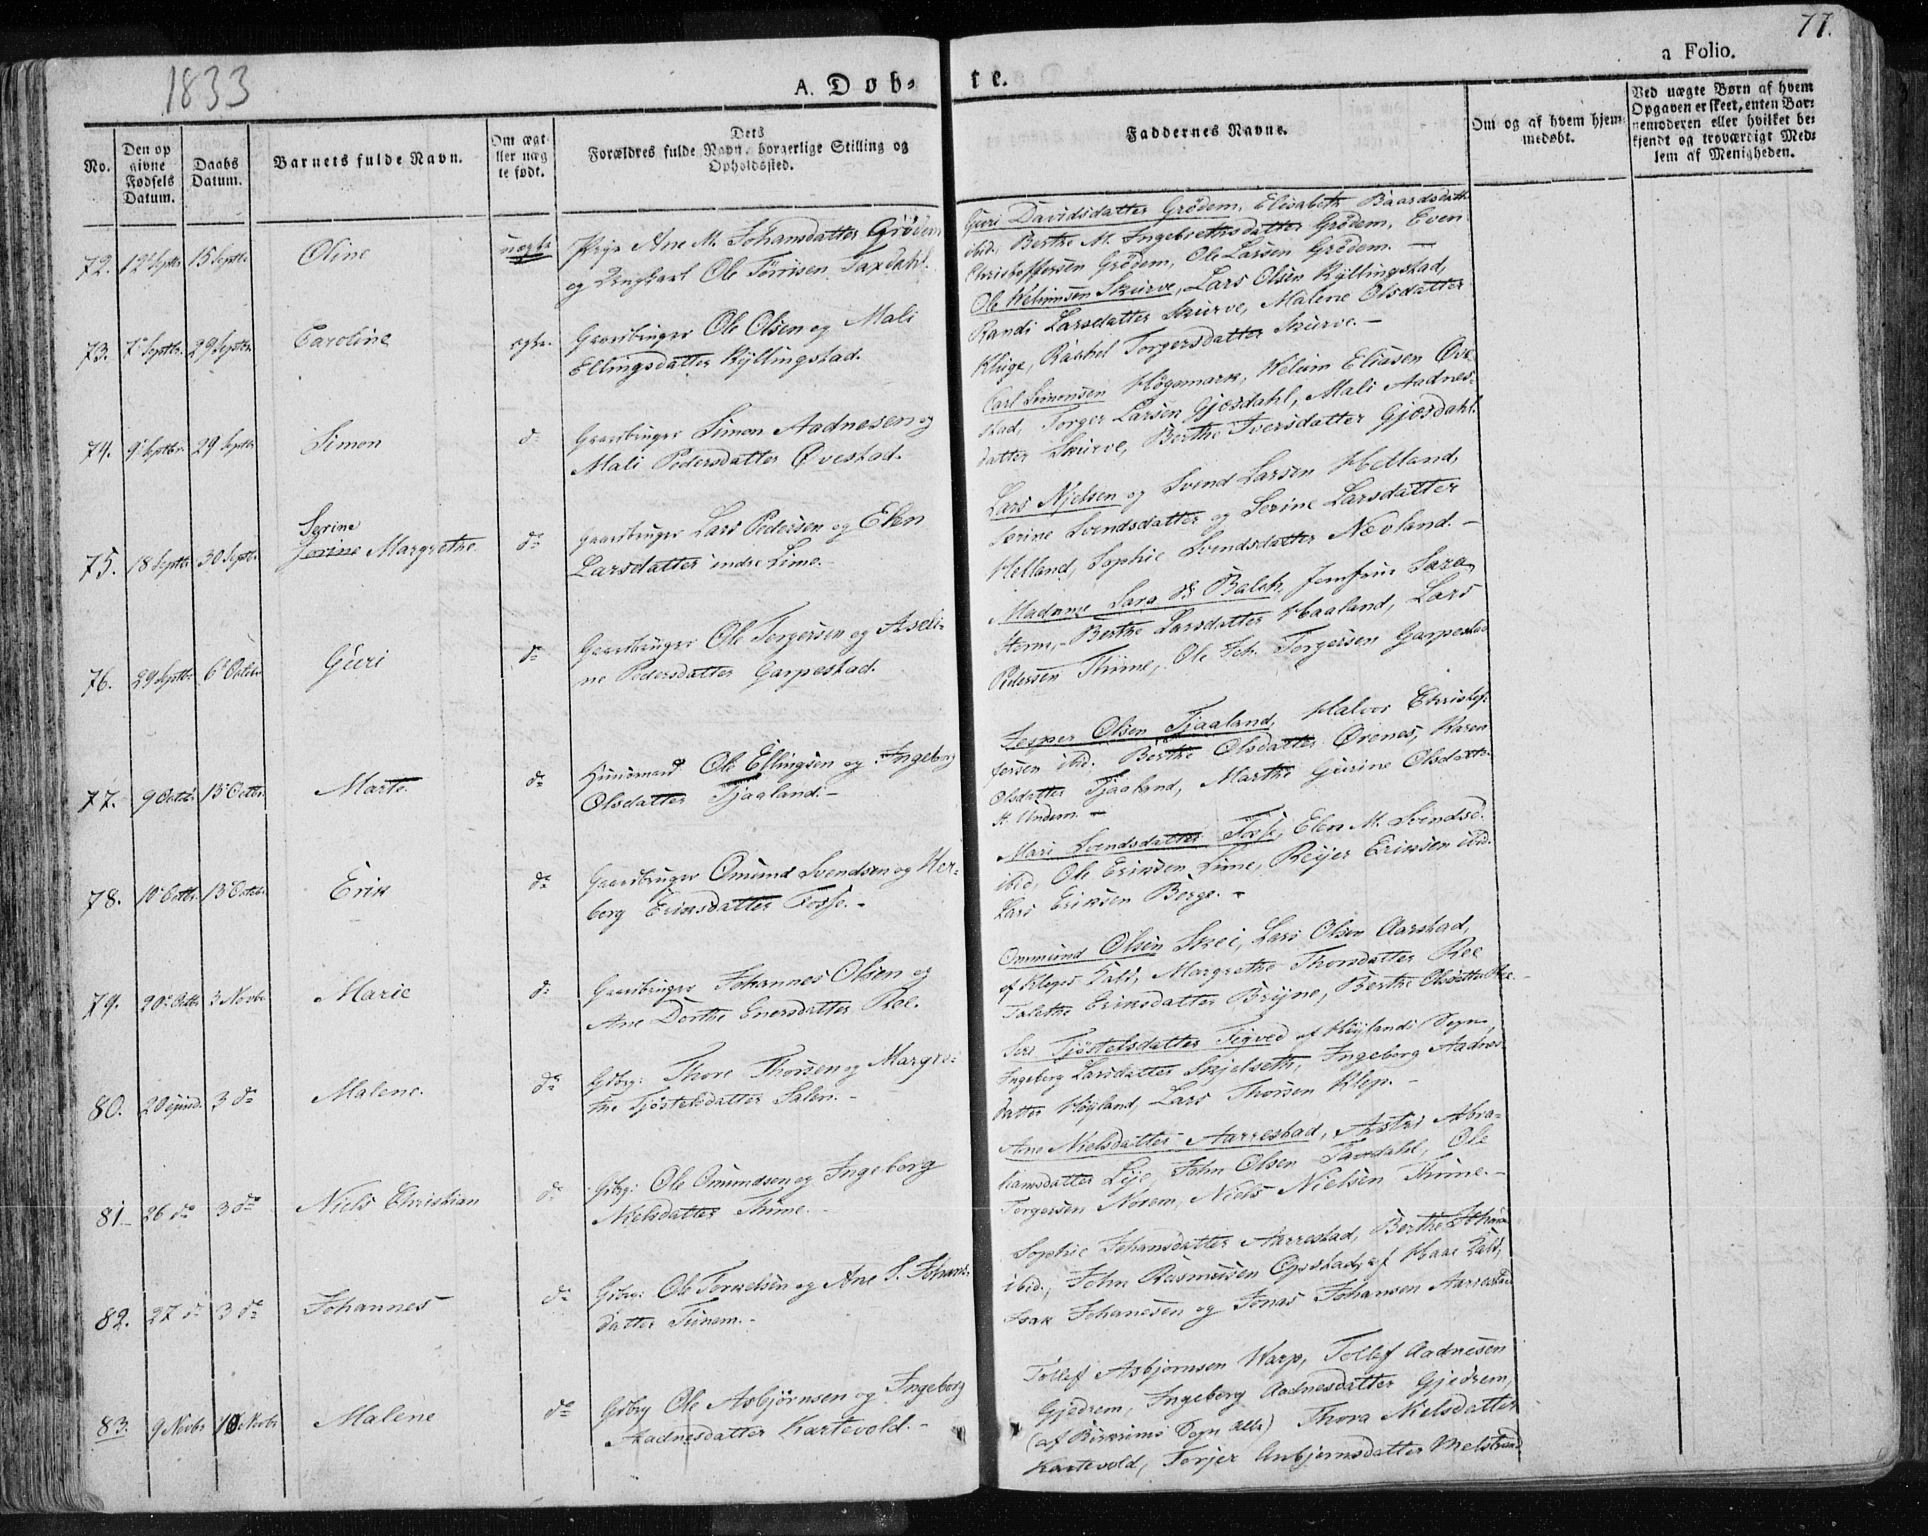 77.
1833
A. Døb-
te.
a Folio.
No.
Den op
givne
Fødsels
Datum.
Daabs
Datum.
Barnets fulde Navn.
Om ægt
ller uæg
te født.
Dets
Forældres fulde Navn, borgerlige Stilling og
Opholdssted.
Faddernes Navne.
Om og af hvem hjem
medøbt.
Ved uægte Børn af hvem
Opgaven er skeet, enten Bar-
nemoderen eller hvilket be-
kjendt og troværdigt Med-
lem af Menigheden.
72. 12 Septbr 15 Septbr Oline uægte
Pige Ane M. Johansdatter Grødem
og Ungkarl Ole Tørrisen Taxdahl.
Guri Davidsdatter Grødem, Elisabeth Baardsdatt
ibid, Berthe M. Ingebrethsdatter Grødem, Even
Christoffersen Grødem, Ole Larsen Grødem. —
73. 7 Septbr. 29 Septbr. Caroline ægte.
Gaardbruger Ole Olsen og Mali
Ellingsdatter Kyllingstad.
Ole Welumsen Skurve, Lars Olsen Kyllingstad,
Randi Larsdatter Skurve, Malene Olsdatter
Kluge, Rachel Torgersdatter Skurve. —
74. 9 Septbr. 29 Septbr Simon do
Gaardbruger Simon Aadnesen og
Mali Pedersdatter Øvestad.
Carl Simonsen Høgamark, Welum Eliasen Øve
stad, Torger Larsen Gjesdahl, Mali Aadnes-
datter Skurve, Berthe Iversdatter Gjesdahl.
75. 18 Septbr 30 Septbr
Serine
Jorine Margrethe do
Gaardbruger Lars Pedersen og Elen
Larsdatter indre Lime. —
Lars Njelsen og Svend Larsen Helland,
Serine Svendsdatter og Serine Larsdatter
Helland, Sophie Svendsdatter Nevland. —
76. 29 Septbr 6 Octobr Guri do
Gaardbruger Ole Torgersen og Aseli-
ne Pedersdatter Garpestad.
Madame Sara B Balch, Jomfrue Sara
Storm, Berthe Larsdatter Haaland, Lars
Pedersen Thime, Ole Joh. Torgersen Garpestad
77. 9 Octbr 13 Octbr. Marte do
Huusmand Ole Ellingsen og Ingeborg
Olsdatter Tjaaland. —
Jesper Olsen Tjaaland, Halvor Christof-
fersen ibid, Berthe Olsdatter Ørenes, Karen
Olsdatter Tjaaland, Marthe Gurine Olsdatter
St. Undem. —
78. 10 Octbr. 13 Octobr. Erik do
Gaardbruger Omund Svendsen og Her-
borg Eriksdatter Fosse. —
Mari Svendsdatter Fosse, Elen M. Svendsd.
ibid, Ole Eriksen Lime, Reijer Eriksen ibid.
Lars Eriksen Berge. —
79. 20 Octbr 3 Novbr Marie do
Gaardbruger Johannes Olsen og
Ane Dorthe Enersdatter Ree.
Ommund Olsen Skei, Lars Olsen Aarstad,
af Kleps Kald, Margrethe Thorsdatter Ree
Talethe Eriksdatter Bryne, Berthe Olsdatter Ree. —
80. 20 ejusd. 3 do Malene. do
Gdbrg: Thore Thorsen og Margre-
the Tjøstelsdatter Salen. —
Siri Tjøstelsdatter Tegved af Høylands Sogn,
Ingeborg Larsdatter Skjelseth, Ingeborg Aadnes-
datter Høyland, Lars Thorsen Klep. —
81 — 26 do 3 do Niels Christian do
Gdbrg: Ole Omundsen og Ingeborg
Nielsdatter Thime. —
Ane Nielsdatter Aarrestad, Astri Abra-
hamsdatter Lye, John Olsen Taxdahl, Ole
Torgersen Norem, Niels Nielsen Thime. —
82. 27 do 3 do Johannes do
Gdbrg: Ole Torkelsen og Ane S. Johans-
datter Tunem. —
Sophie Johansdatter Aarrestad, Berthe
ibid., John Rasmussen Opstad, af Haae Kald,
Isak Johanesen og Jonas Johansen Aarrestad
83. 9 Novbr 10 Novbr Malene do
Gdbrg Ole Asbjørnsen og Ingeborg
Aadnesdatter Kartevold. —
Tollef Asbjornsen Warp, Tollef Aadnesen
Gjedrem, Ingeborg Aadnesdatter Gjedrem,
(af Birkrims Sogn alle) Thora Nielsdatter
Kartevold, Torjer Anbjornsdatter Melstrand